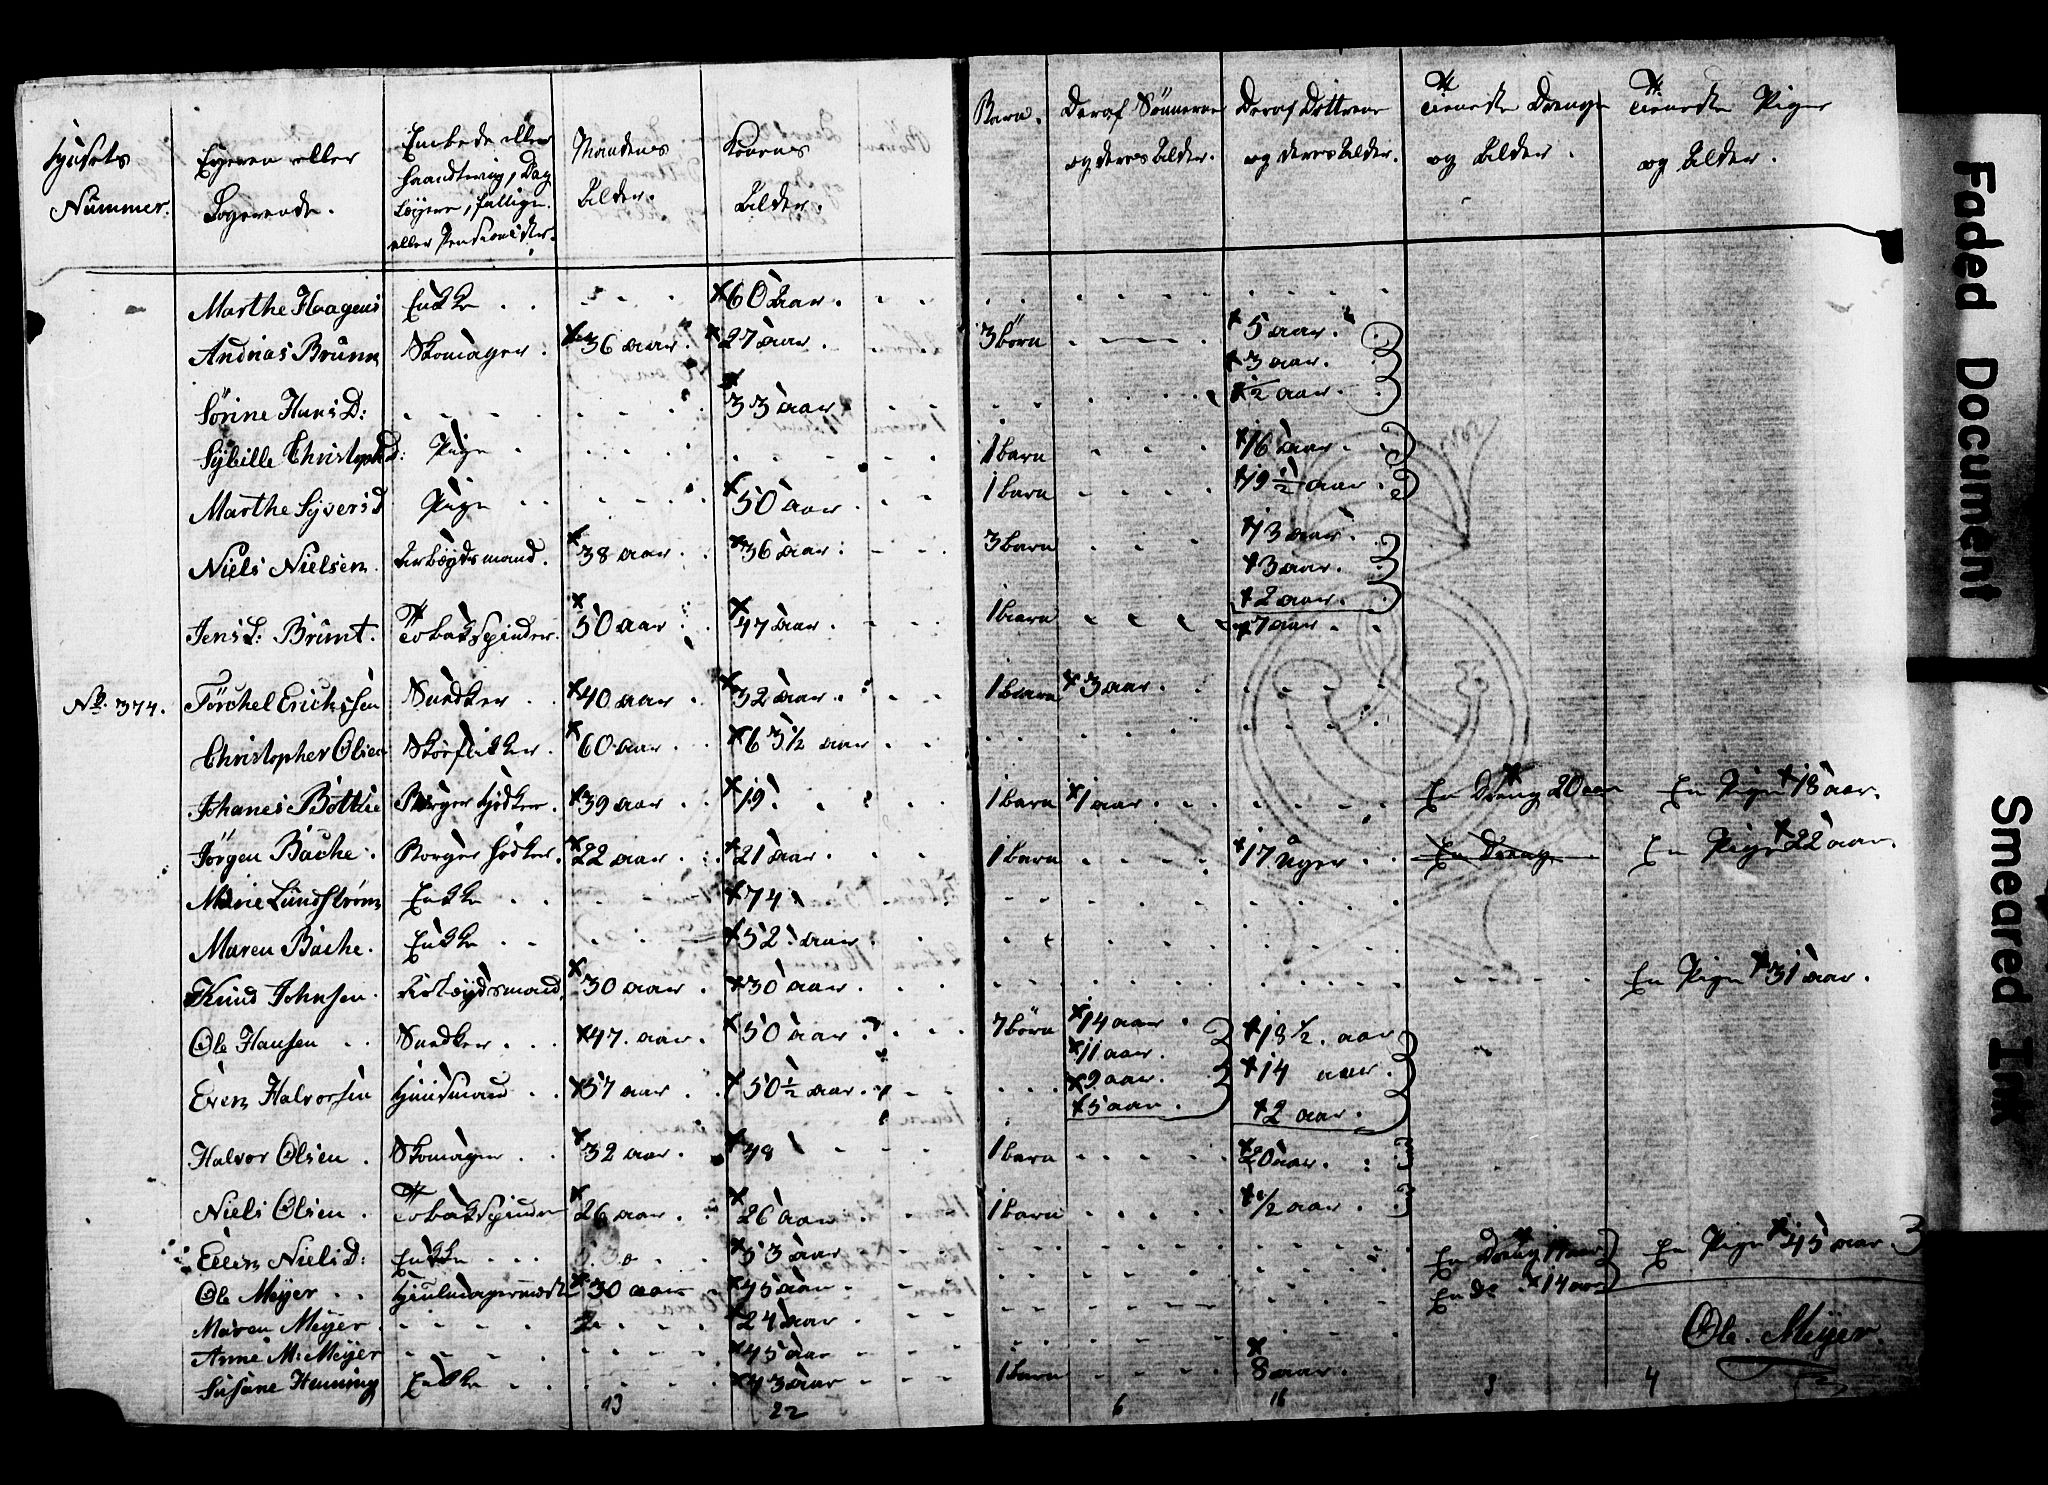 Husets Nummer.
Eyeren eller Logerende.
Embede eller Haandtering, Dag Leyere, fattige eller Pensionister.
Mandens Alder.
Konens Alder.
Barn.
Deraf Sönnerne og deres Alder.
Deraf Döttrene og deres Alder.
Tieneste Drenge og Alder.
Tieneste Piger og Alder.
Marthe Haagens Enkke . . 60 aar.
Andrias Brunn Skomager. 36 aar. 27 aar. 3 börn 5 aar.
3 aar.
Sörine Hans D: 33 aar 1/2 aar.
Sybille Christoph D: Pige 1 barn 16 aar.
Marthe Syvers D Pige 50 aar. 1 barn 19 1/2 aar.
Niels Nielsen. Arbeydsmand. 38 aar. 36 aar. 3 barn 13 aar.
3 aar.
2 aar.
Jens L: Brunt. Tobakspinder. 50 aar 47 aar. 1 barn 7 aar.
No. 374. Törchel Erichssen Snedker 40 aar 32 aar. 1 barn 3 aar.
Christopher Olsen Skoeflikker. 60 aar. 63 1/2 aar
Johanes Bötthe Borger Hödker. 39 aar 19. 1 barn 1 aar. En Dreng 20 aar En Pige 18 aar.
Jörgen Bache. Borger Hödker. 22 aar. 21 aar. 1 barn 17 Uger. En Dreng En Pige 22 aar.
Marie Lundström Enkke 74
Maren Bache. Enkke 52 aar
Knud Johnsen. Arbeydsmand. 30 aar. 30 aar. En Pige 31 aar.
Ole Hansen Snedker 47 aar. 50 aar 7 börn 14 aar. 18 1/2 aar
11 aar. 14 aar.
Even Halvorsen Huusmand 57 aar 50 1/2 aar. 9 aar.
5 aar. 2 aar.
Halvor Olsen. Skomager 32 aar. 48 1 barn 20 aar.
Niels Olsen. Tobakspinder 26 aar. 26 aar. 1 barn 1/2 aar.
Ellen Niels D: Enkke 53 aar En Dreng 17 aar En Pige 45 aar.
Ole Meyer Hiulmagermester 30 aar 45 aar. En do 14 aar
Maren Meyer. 24 aar.
Anne M. Meyer 45 aar
Susane Henning Enkke 43 aar 1 barn 8 aar.
13 22 6 16 3 4
Ole. Meyer.
Faded Document
Smeared Ink